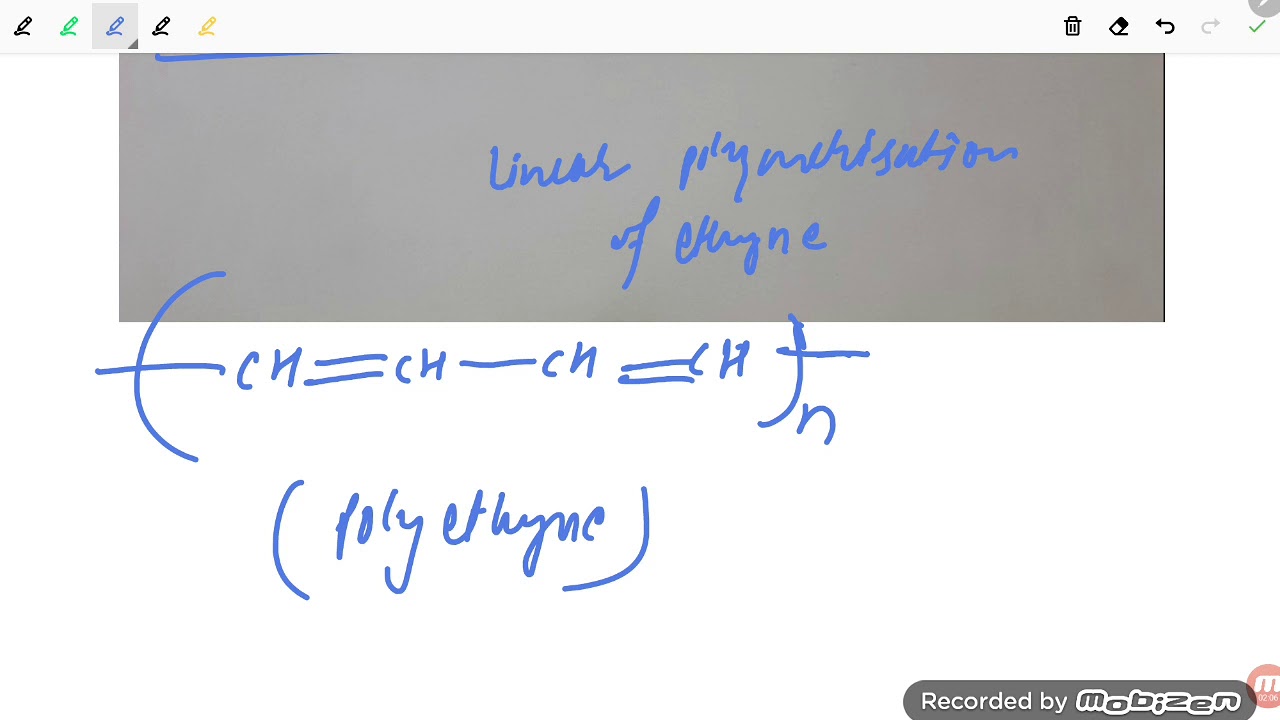 Linear polymerisation
of ethyne
( CH = CH — CH = CH )n
(polyethyne)
Recorded by mobizen
02:06